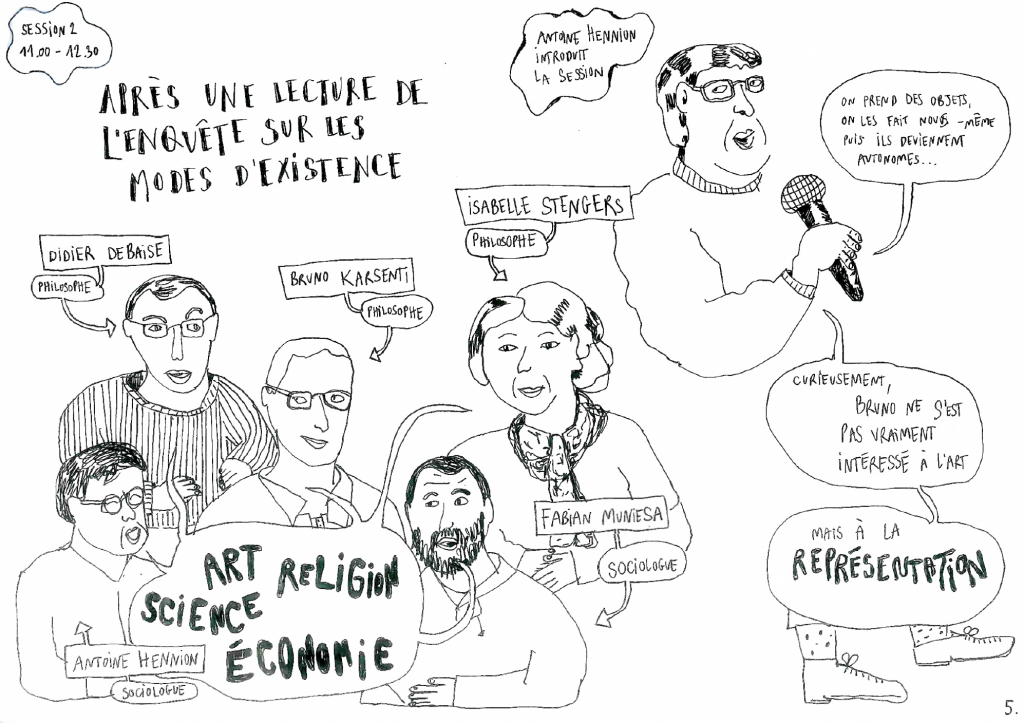 SESSION 2
11.00 - 12.30
APRÈS UNE LECTURE DE
L'ENQUÊTE SUR LES
MODES D'EXISTENCE
ANTOINE HENNION
INTRODUIT
LA SESSION
ON PREND DES OBJETS,
ON LES FAIT NOUS -MÊME
PUIS ILS DEVIENNENT
AUTONOMES...
ISABELLE STENGERS
PHILOSOPHE
DIDIER DEBAISE
PHILOSOPHE
BRUNO KARSENTI
PHILOSOPHE
CURIEUSEMENT,
BRUNO NE S'EST
PAS VRAIMENT
INTÉRESSÉ À L'ART
FABIAN MUNIESA
SOCIOLOGUE
MAIS À LA
REPRÉSENTATION
ART RELIGION
SCIENCE
ÉCONOMIE
ANTOINE HENNION
SOCIOLOGUE
5.